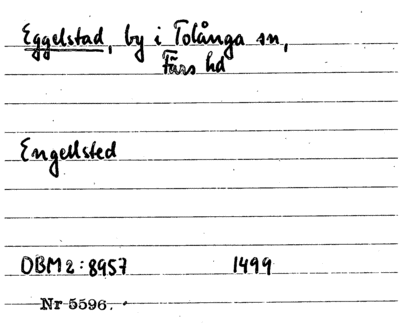 Eggelstad, by i Tolånga sn,
Färs hd
Engellsted
DBM 2:8957 1499
Nr 5596.